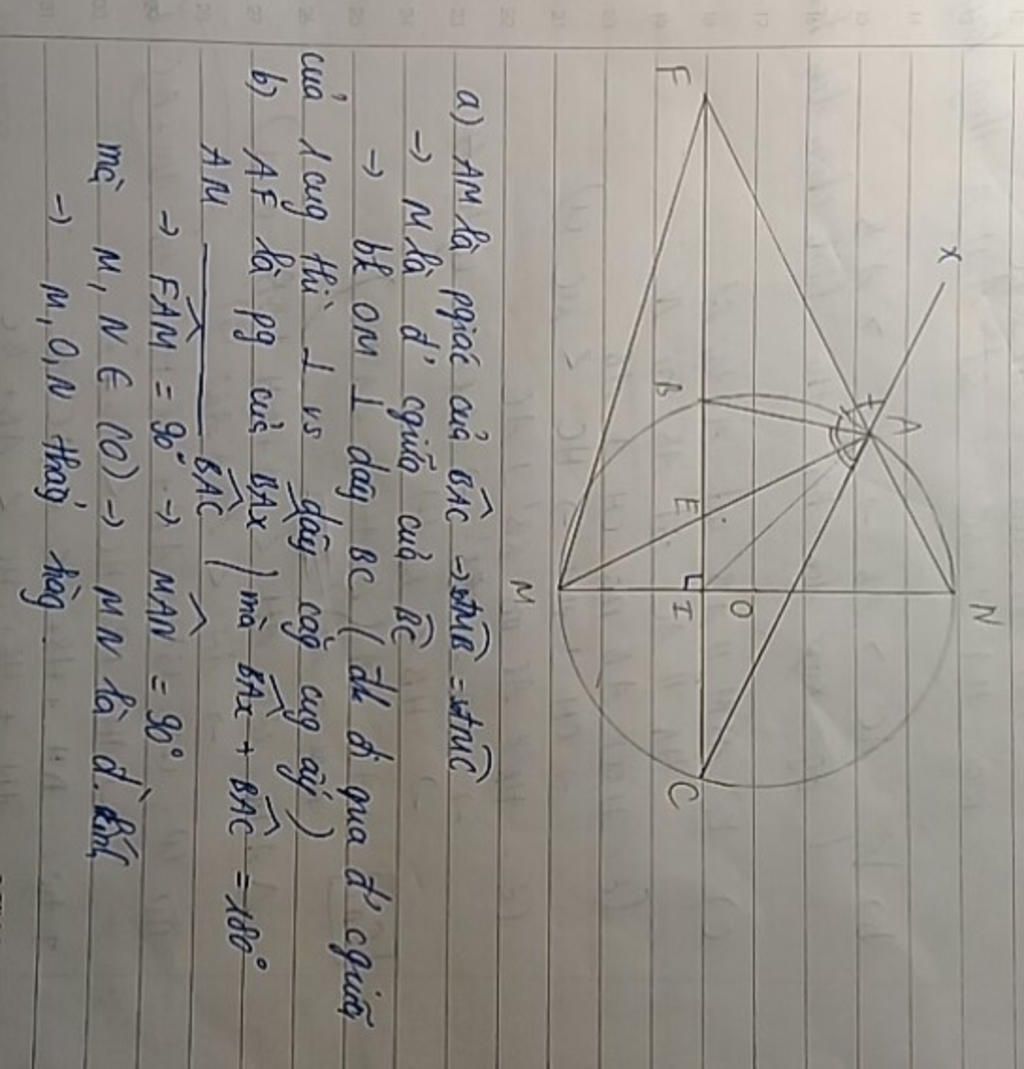 x
N
A
F
B
E
I
O
C
M
a) AM là pgiác của BAC → sđMB = sđMC
→ M là đ' cgiữa của BC
→ bk OM ⊥ dây BC (đk đi qua đ' cgiữa
của 1 cug thì ⊥ vs dây căg cug ấy)
b) AF là pg của BAx ) mà BAx + BAC = 180°
AM BAC
→ FAM = 90° → MAN = 90°
mà M, N ∈ (O) → MN là đ. kính
→ M, O, N thẳg hàg